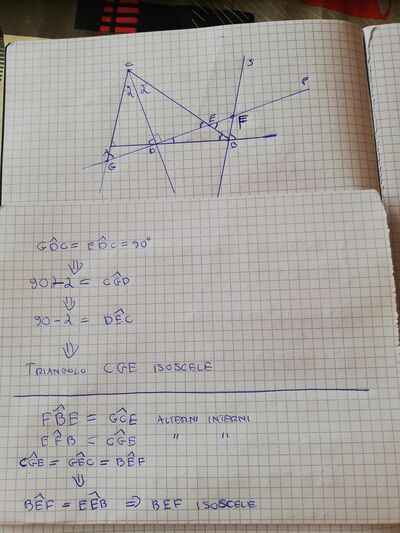 C
S
2 2
P
E
F
D
B
G
GD̂C = ED̂C = 90°
⇓
90-2 = CĜD
⇓
90-2 = DÊC
⇓
TRIANGOLO CGE ISOSCELE
FB̂E = GĈE ALTERNI INTERNI
EF̂B = CĜE " "
CĜE = GÊC = BÊF
⇓
BÊF = EÊB ⇒ BEF ISOSCELE